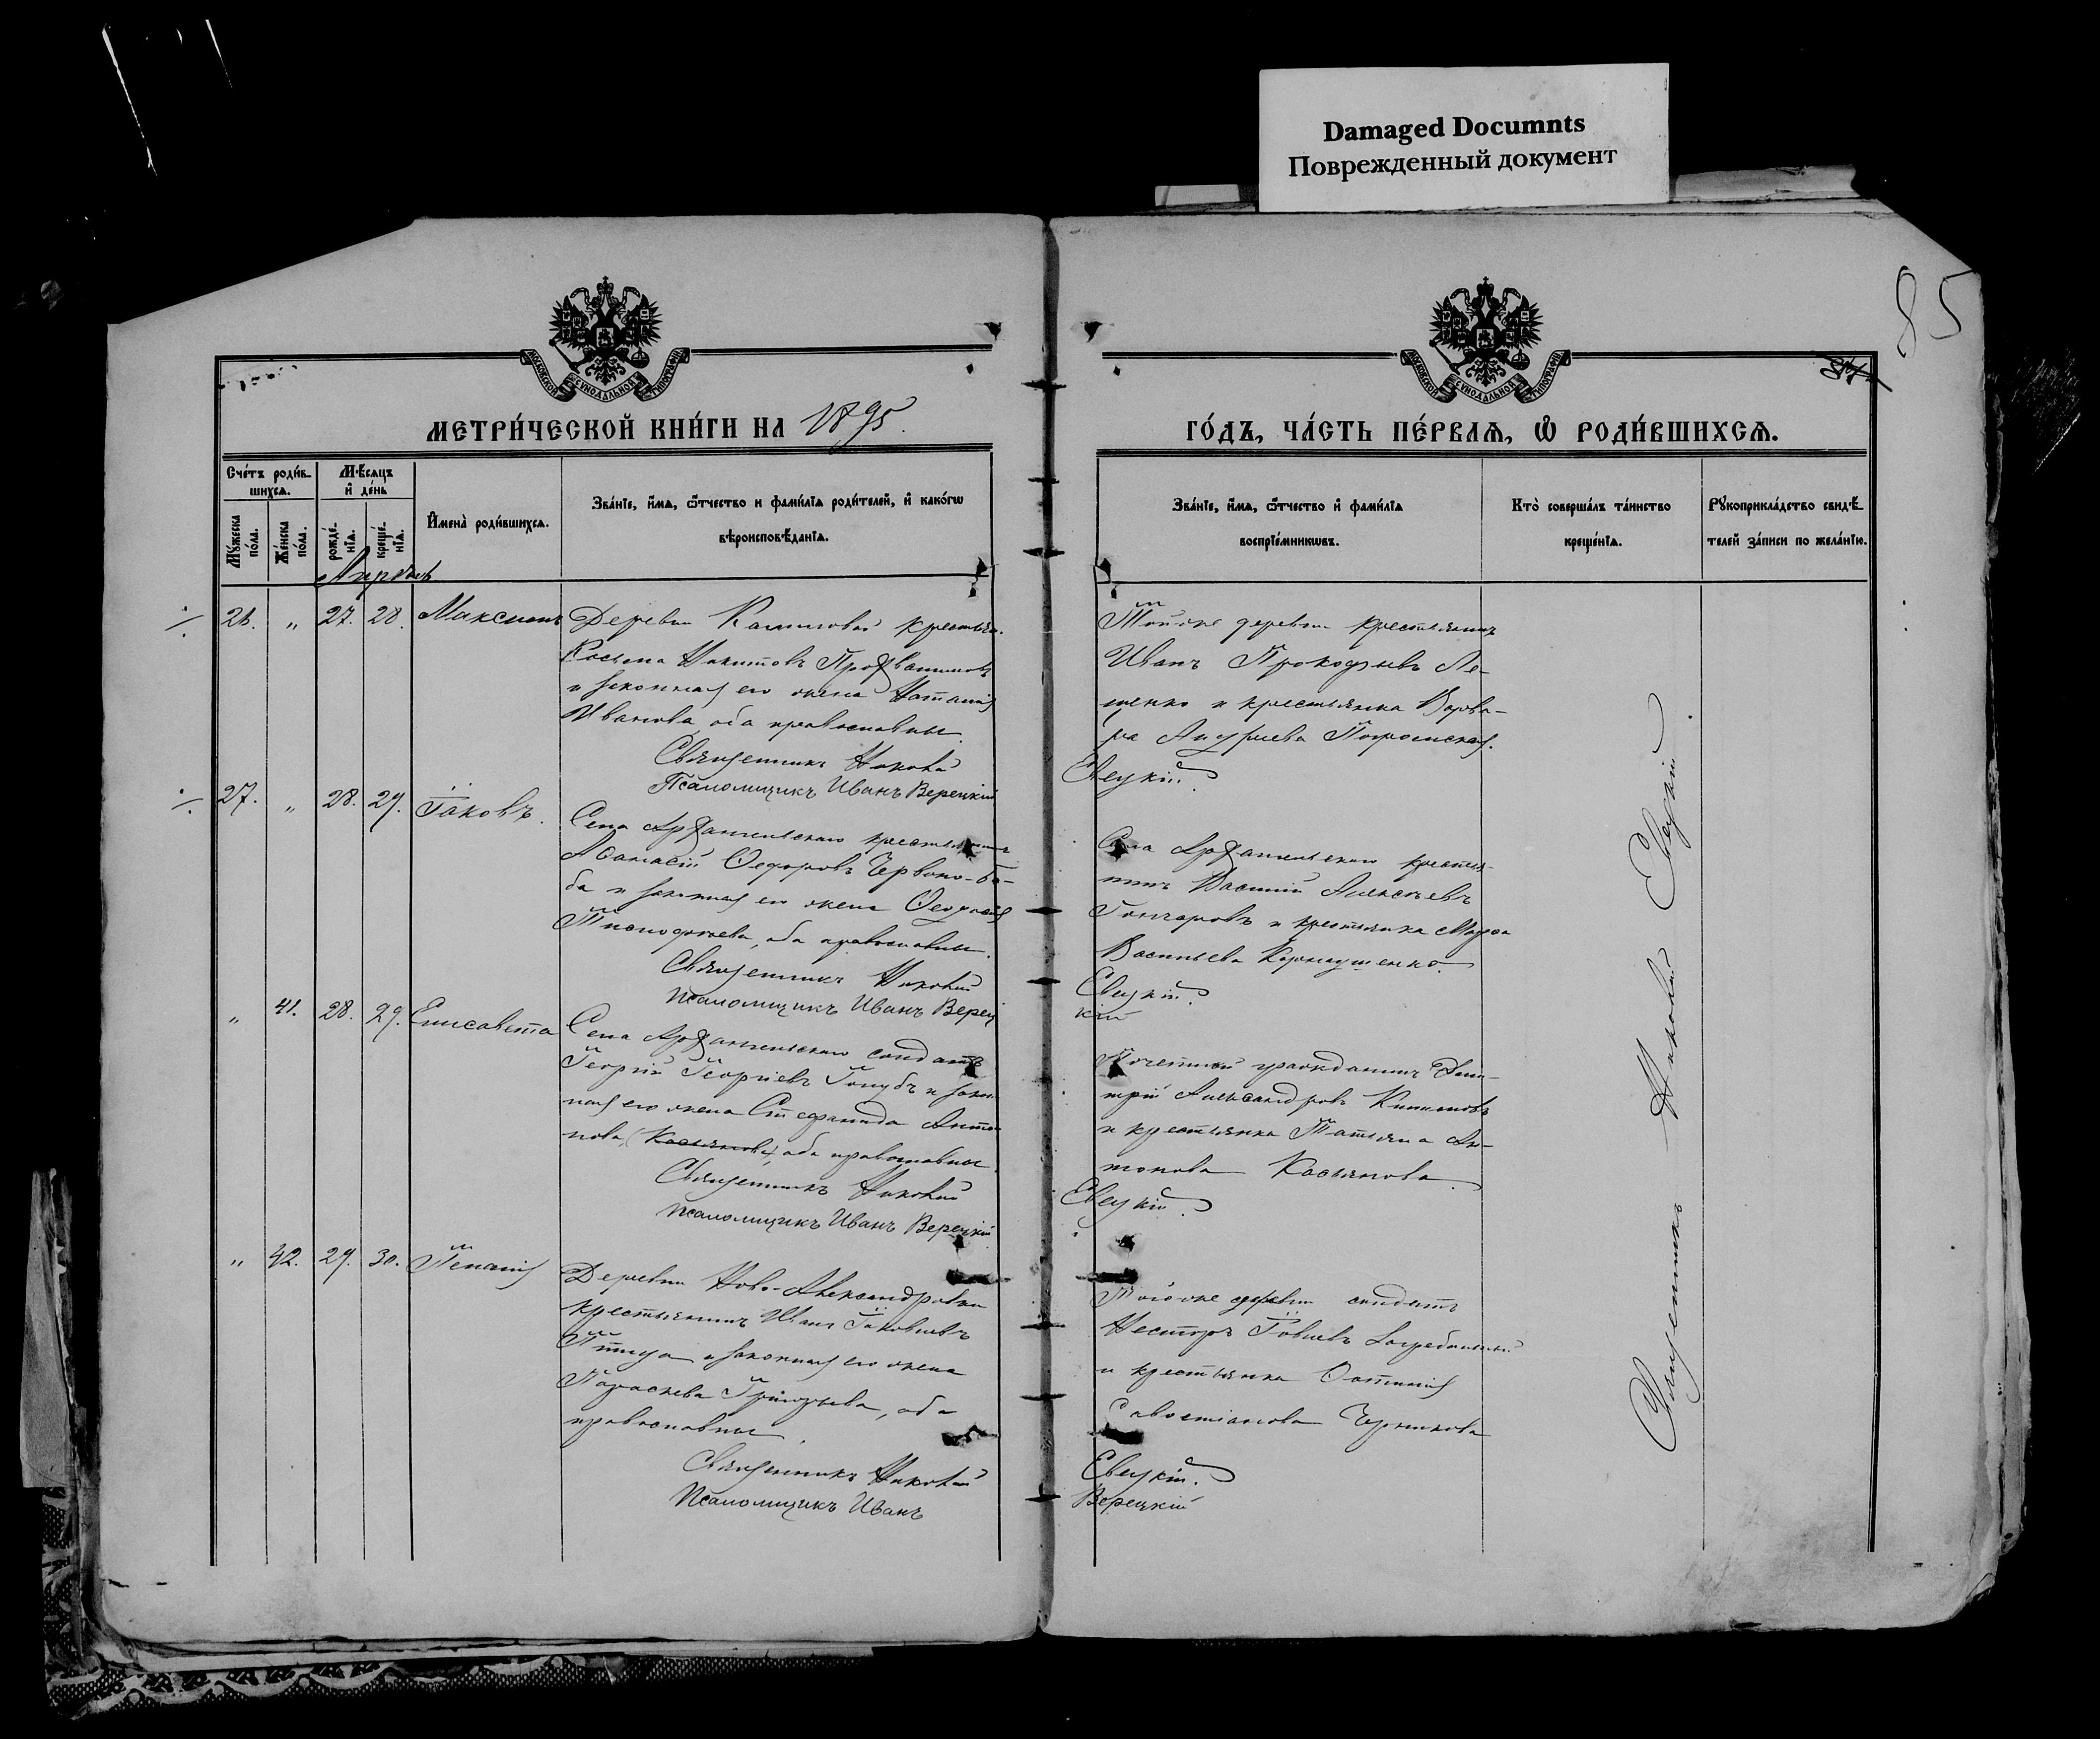 Damaged Documnts
Поврежденный документ
85
84
МОСКОВСКОЙ СѴНОДАЛЬНОЙ ТИПОГРАФІИ
МОСКОВСКОЙ СѴНОДАЛЬНОЙ ТИПОГРАФІИ
МЕТРИ́ЧЕСКОЙ КНИ́ГИ НА 1895.
ГО́ДЪ, ЧА́СТЬ ПЕ́РВАѦ, Ѡ҆ РОДИ́ВШИХСѦ.
Сче́тъ роди́в-
шихсѧ.
Мꙋ́жеска по́ла.
Же́нска по́ла.
Мѣ́сѧцъ
и҆ де́нь
рожде́-
нїѧ.
креще́-
нїѧ.
И҆мена̀ роди́вшихсѧ.
Зва́нїе, и҆́мѧ, ѻ҆́тчество и фами́лїѧ роди́телей, и҆ како́гѡ
вѣроисповѣ́данїѧ.
Зва́нїе, и҆́мѧ, ѻ҆́тчество и҆ фами́лїѧ
воспрїе́мникѡвъ.
Кто̀ соверша́лъ та́инство
креще́нїѧ.
Рꙋкоприкла́дство свидѣ́-
телей за́писи по жела́нїю.
Апрѣль
26. „ 27. 28. Максимъ
Деревни Калиновой крестьян.
Косьма Никитовъ
и законная его жена Наталія
Иванова, оба православные.
Священникъ Николай
Псаломщикъ Иванъ Верецкій
Тойже деревни крестьянинъ
Иванъ Прокофьевъ Ле-
щенко и крестьянка Варва-
ра Андреева
Евецкій.
27. „ 28. 29. Іаковъ.
Села Архангельскаго крестьянинъ
Аѳанасій Ѳедоровъ Червоно-ба-
ба и законная его жена Ѳеодосія
Тимофеева, оба православные.
Священникъ Николай
Псаломщикъ Иванъ Верец
Села Архангельскаго крестья-
нинъ Василій Алексѣевъ
Гончаровъ и крестьянка Марѳа
Васильева
Евецкій.
кій
„ 41. 28. 29. Елисавета
Села Архангельскаго солдатъ
Георгій Георгіевъ Голубъ и закон
ная его жена Стефанида Анто
нова, (Касьянова) оба православные.
Священникъ Николай
Псаломщикъ Иванъ Верецкій
Почетный гражданинъ Дми-
трій Александровъ
и крестьянка Татьяна Ан-
тонова Касьянова.
Евецкій.
„ 42. 29. 30. Пелагія
Деревни Ново-Александровки
крестьянинъ Иванъ Іаковлевъ
Птица и законная его жена
Параскева Григорьева, оба
православные.
Священникъ Николай
Псаломщикъ Иванъ
Тойже деревни солдатъ
Несторъ Іовлевъ
и крестьянка
Савостіанова Черникова
Евецкій.
Верецкій
Священникъ Николай Евецкій.